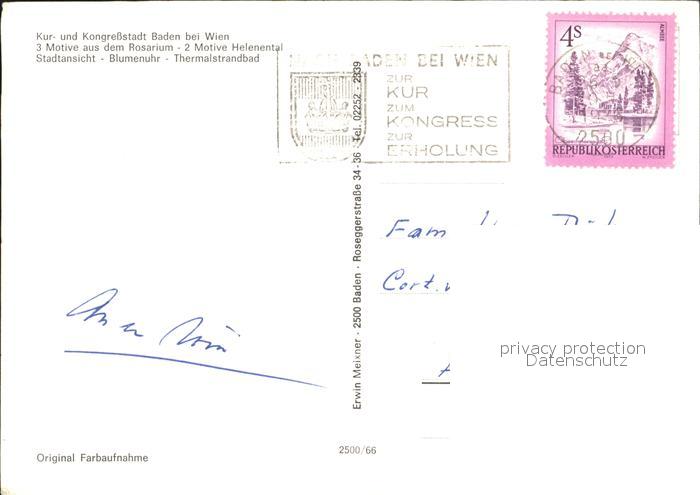 Kur- und Kongreßstadt Baden bei Wien
3 Motive aus dem Rosarium - 2 Motive Helenental
Stadtansicht - Blumenuhr - Thermalstrandbad
BADEN BEI WIEN
ZUR
KUR
ZUM
KONGRESS
ZUR
ERHOLUNG
4s
ALMSEE
2500
REPUBLIK ÖSTERREICH
Erwin Meixner - 2500 Baden - Roseggerstraße 34-36 - Tel. 02252 - 2839
Fam
privacy protection
Datenschutz
2500/66
Original Farbaufnahme